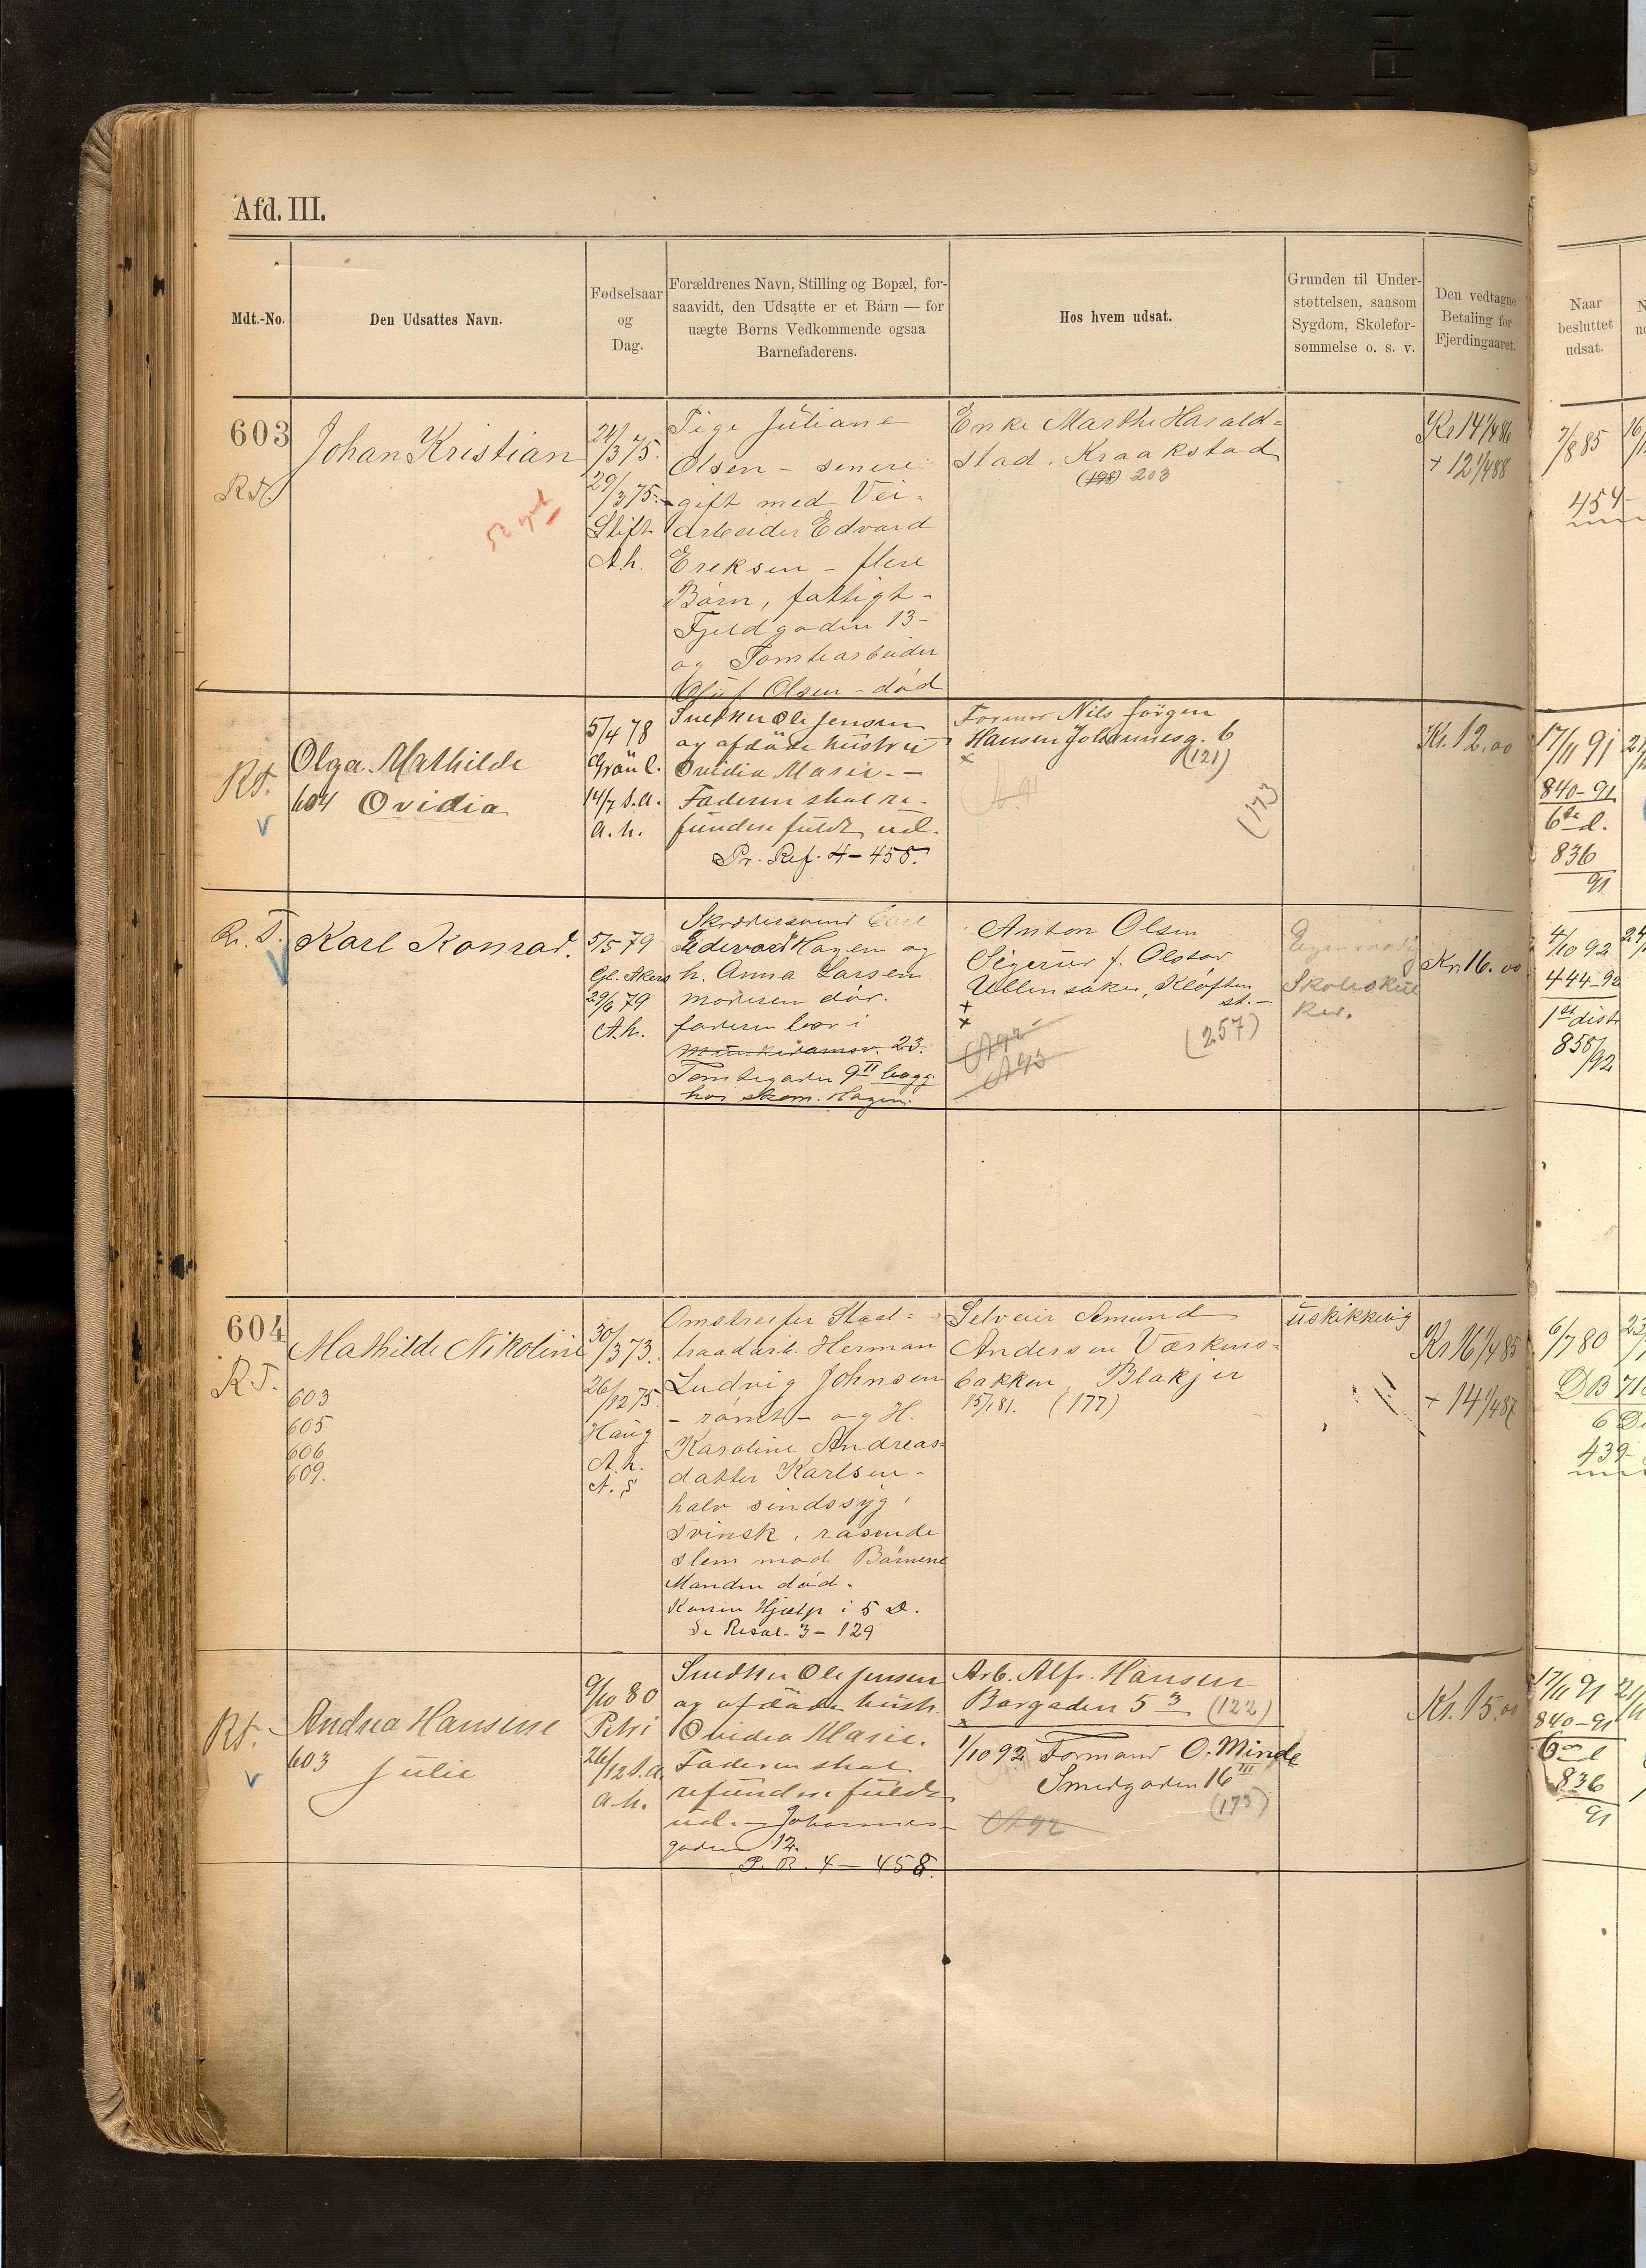 Afd. III.
Mdt.-No.
Den Udsattes Navn.
Fødselsaar
og
Dag.
Forældrenes Navn, Stilling og Bopæl, for-
saavidt, den Udsatte er et Barn — for
uægte Børns Vedkommende ogsaa
Barnefaderens.
Hos hvem udsat.
Grunden til Under-
støttelsen, saasom
Sygdom, Skolefor-
sømmelse o. s. v.
Den vedtagne
Betaling for
Fjerdingaaret.
Naar
besluttet
udsat.
603
Johan Kristian
24/3 75.
29/3 75.
Slift
A.h.
Pige Juliane
Olsen - senere
gift med Vei-
arbeider Edvard
Ereksen - flere
Børn, fattigt -
Fjeldgaden 13 -
og Tomtearbeider
Oluf Olsen - død
Enke Marthe Harald-
stad. Kraakstad
(198) 203
Kr 14 1/4 86
+ 12 1/4 88
7/8 85
454-
Rf.
Olga Mathilde
604 Ovidia
5/4 78
Grøn l.
14/7 s.a.
a.h.
Snedker Ole Jensen
og afdøde hustru
Ovidia Marie. -
Faderen skal re-
fundere fuldt ud.
Pr. Ref. 4-458.
Former Nils Jörgen
Hansen Johannesg. 6
(121)
A. 91
(173
Kr. 12.00
17/11 91
840-91
6te d.
836
91
R. T.
Karl Konrad.
5/5 79
Gl. Akers
29/6 79
A.h.
Skrædersvend Carl
Edevard Hagen og
h. Anna Larsen
moderen dør.
faderen bor i
Munkedamsv. 23.
Tomtegaden 9 II bagg.
hos skom. Hagen.
Anton Olsen
Sigerud f. Olstad
Ullensaker, Kløften
st. -
(257)
A 92
A 93
Skolesku
ker.
Kr. 16.00
4/10 92
444-92
1st distr
858/92
604
R.T.
Mathilde Nikoline
603
605
606
609.
30/3 73.
26/12 75.
Haug
A.h.
A. S
Omstreifer Staal-
traadarb. Herman
Ludvig Johnsen
- rømt - og H.
Karoline Andreas-
datter Karlsen -
halv sindssyg,
svinsk, rasende
slem mod Børnene
Manden død.
Konen Hjælp i 5 D.
Se Resol. 3 - 129
Selveier Amund
Andersen Værkens-
bakken, Blakjer
15/1 81. (177)
uskikkelig
Kr 16 1/4 85
+ 14 1/4 87
6/7 80
DB 710
439-
Rf.
Andrea Hansine
603 Julie
9/10 80
Petri
26/12 s.a.
a.h.
Snedker Ole Jensen
og afdøde hustr.
Ovidia Marie.
Faderen skal
refundere fuldt
ud. - Johannes-
gaden 12.
P. R. 4 - 458.
Arb. Alfr. Hansen
Borgaden 5 3 (122)
1/10 92 Formand O. Minde
Smedgaden 16 III
(173)
A 92
Kr. 15.00
17/11 91
840-91
836
91